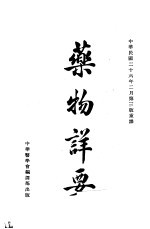 中華民國二十六年二月第三版重譯
藥物詳要
中華醫學會編譯部出版